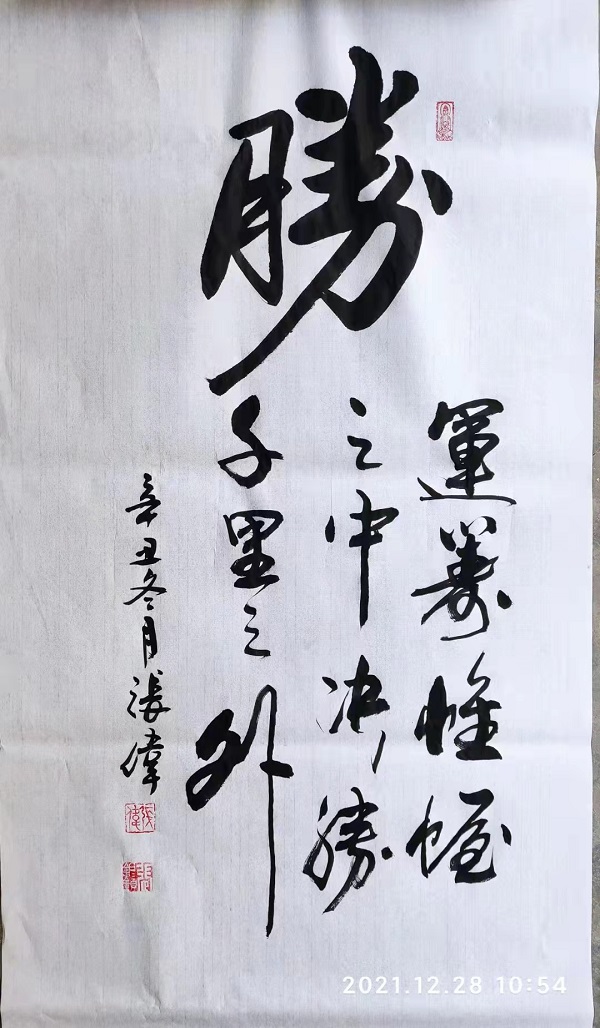 勝
運籌帷幄
之中决勝
千里之外
辛丑冬月張偉
2021.12.28 10:54